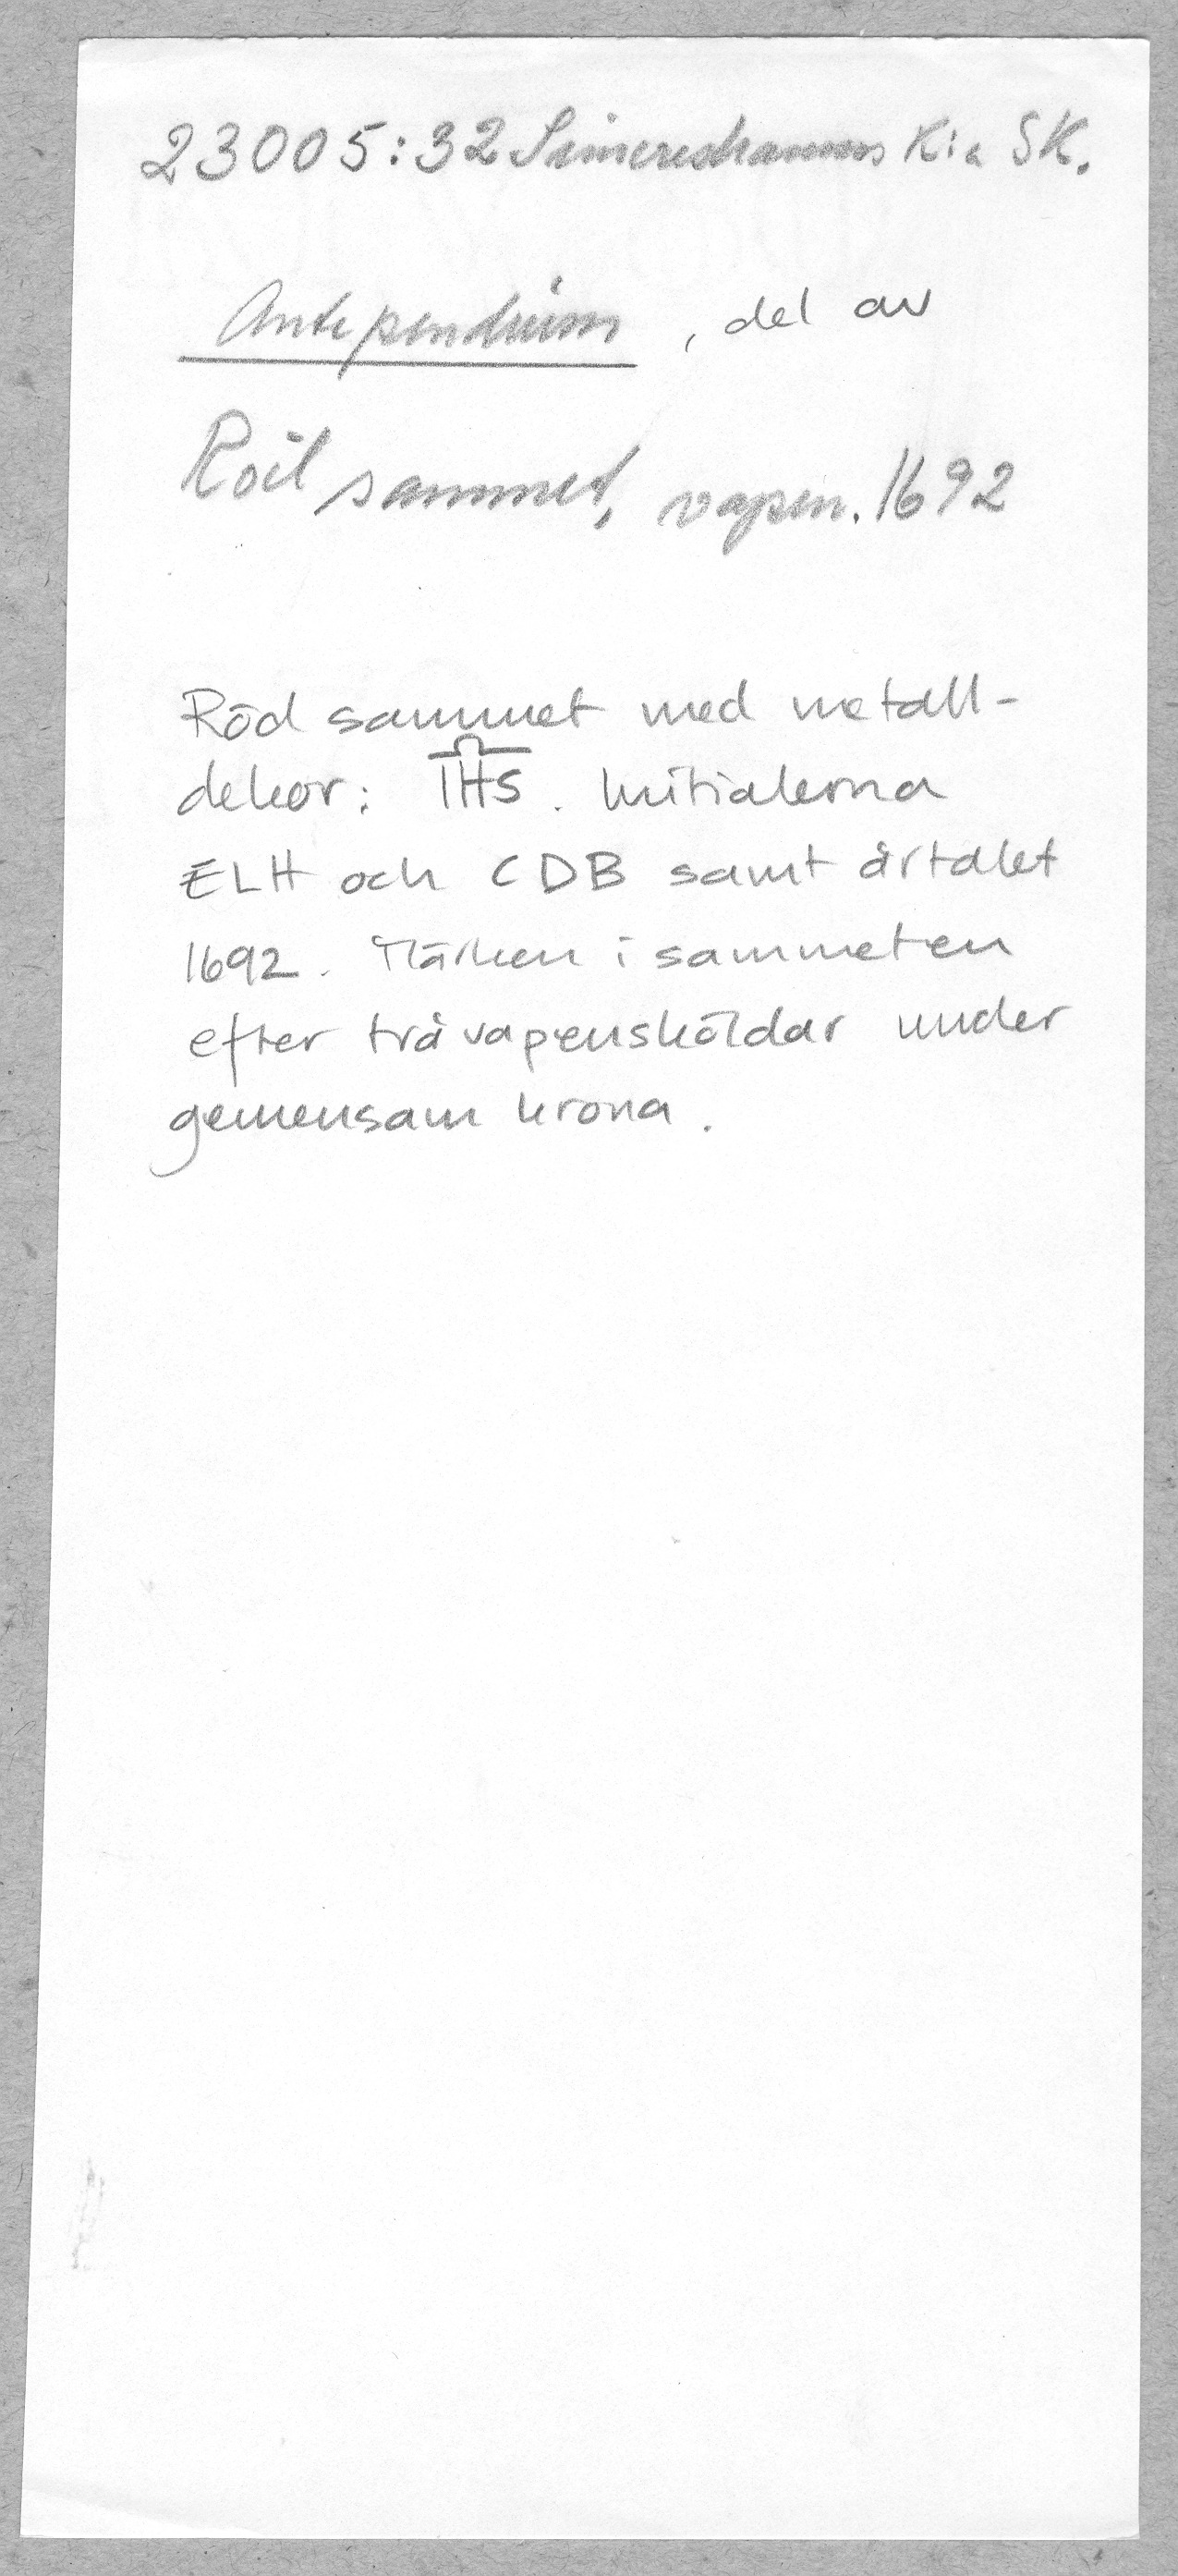 23005:32 Simrishamns K:a SK.
Antependium, del av
Röd sammet, vapen. 1692
Röd sammet med metall-
dekor: IHS. Initialerna
ELH och CDB samt årtalet
1692. Märken i sammeten
efter två vapensköldar under
gemensam krona.